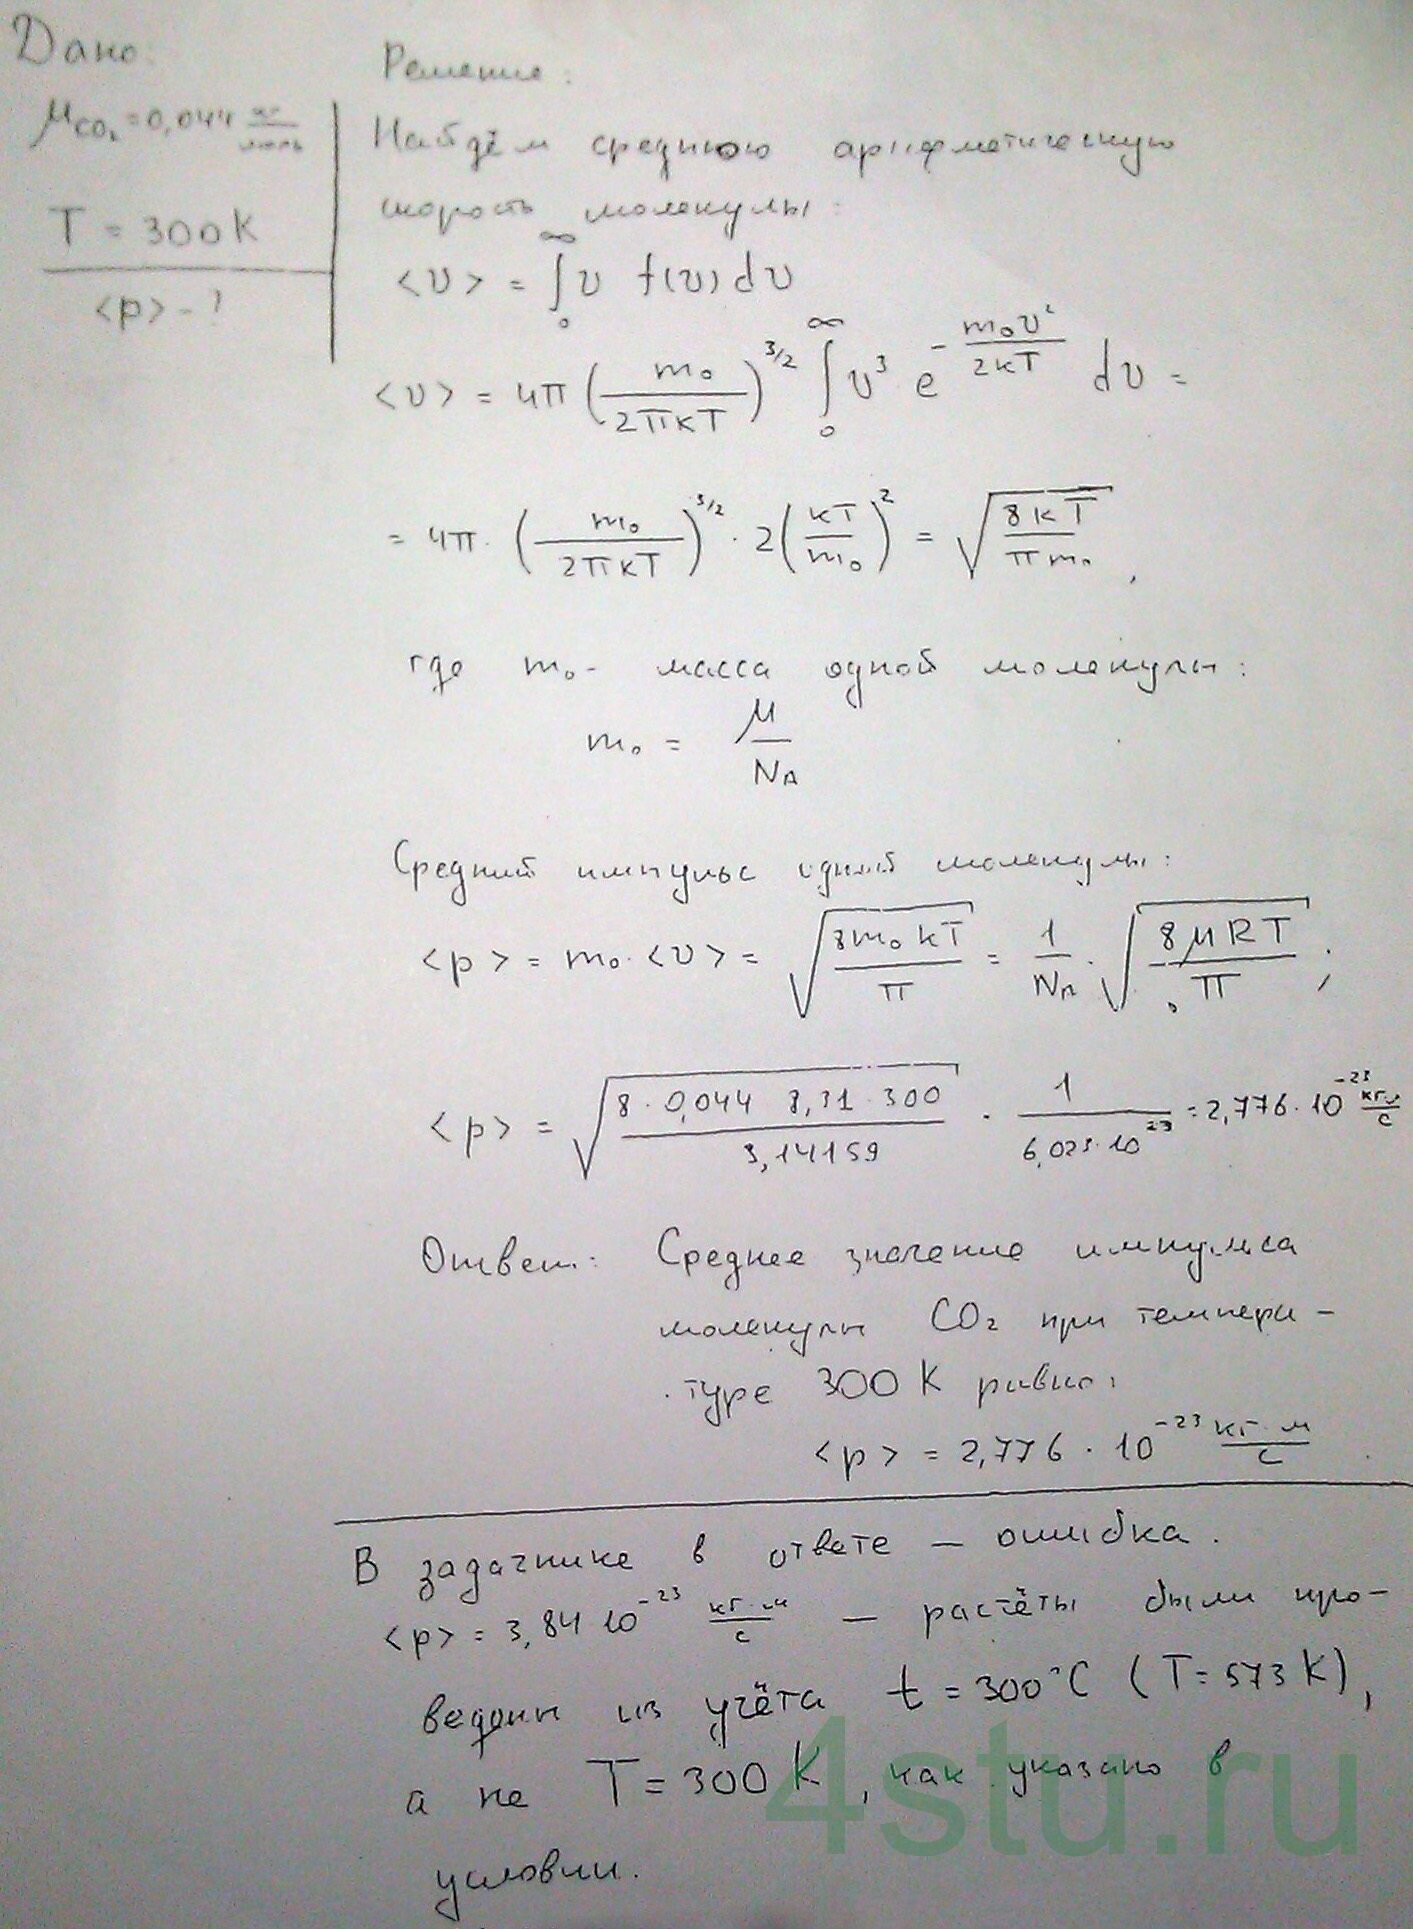 Дано:
μCO₂ = 0,044 кг/моль
T = 300 K
<p> - ?
Решение:
Найдём среднюю арифметическую
скорость молекулы:
<υ> = ∫₀^∞ υ f(υ) dυ
<υ> = 4π (m₀/2πkT)^3/2 ∫₀^∞ υ³ e^(-m₀υ²/2kT) dυ =
= 4π · (m₀/2πkT)^3/2 · 2(kT/m₀)² = √(8kT/πm₀) ,
где m₀ - масса одной молекулы:
m₀ = μ/N_A
Средний импульс одной молекулы:
<p> = m₀ · <υ> = √(8m₀kT/π) = 1/N_A · √(8μRT/π) ;
<p> = √(8 · 0,044 8,31 · 300/3,14159) · 1/(6,023 · 10^23) = 2,776 · 10^-23 кг·м/с
Ответ: Среднее значение импульса
молекулы CO₂ при темпера-
туре 300 K равно:
<p> = 2,776 · 10^-23 кг·м/с
В задачнике в ответе — ошибка.
<p> = 3,84 10^-23 кг·м/с — расчёты были про-
ведены из учёта t = 300°C (T = 573 K),
а не T = 300 K, как указано в
условии.
4stu.ru